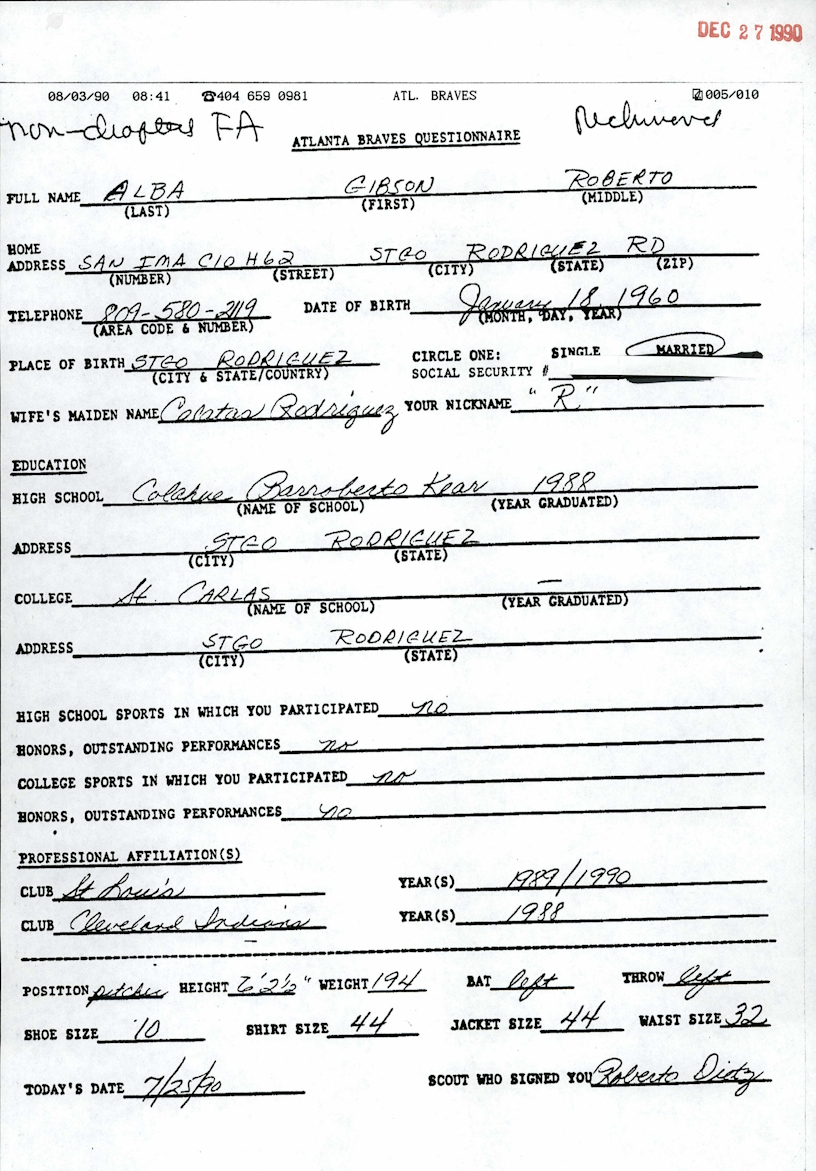 DEC 27 1990
08/03/90 08:41 ☎404 659 0981 ATL. BRAVES 005/010
non-drafted FA Richmond
ATLANTA BRAVES QUESTIONNAIRE
FULL NAME ALBA GIBSON ROBERTO
(LAST) (FIRST) (MIDDLE)
HOME
ADDRESS SAN IMA C10 H62 STGO RODRIGUEZ RD
(NUMBER) (STREET) (CITY) (STATE) (ZIP)
TELEPHONE 809-580-2119 DATE OF BIRTH January 18, 1960
(AREA CODE & NUMBER) (MONTH, DAY, YEAR)
PLACE OF BIRTH STGO RODRIGUEZ CIRCLE ONE: SINGLE MARRIED
(CITY & STATE/COUNTRY) SOCIAL SECURITY #
WIFE'S MAIDEN NAME Rodriguez YOUR NICKNAME "R"
EDUCATION
HIGH SCHOOL 1988
(NAME OF SCHOOL) (YEAR GRADUATED)
ADDRESS STGO RODRIGUEZ
(CITY) (STATE)
COLLEGE St. CARLAS —
(NAME OF SCHOOL) (YEAR GRADUATED)
ADDRESS STGO RODRIGUEZ
(CITY) (STATE)
HIGH SCHOOL SPORTS IN WHICH YOU PARTICIPATED no
HONORS, OUTSTANDING PERFORMANCES no
COLLEGE SPORTS IN WHICH YOU PARTICIPATED no
HONORS, OUTSTANDING PERFORMANCES no
PROFESSIONAL AFFILIATION(S)
CLUB St Louis YEAR(S) 1989/1990
CLUB Cleveland Indians YEAR(S) 1988
POSITION pitcher HEIGHT 6'2½" WEIGHT 194 BAT left THROW left
SHOE SIZE 10 SHIRT SIZE 44 JACKET SIZE 44 WAIST SIZE 32
TODAY'S DATE 7/25/90 SCOUT WHO SIGNED YOU Roberto Diaz